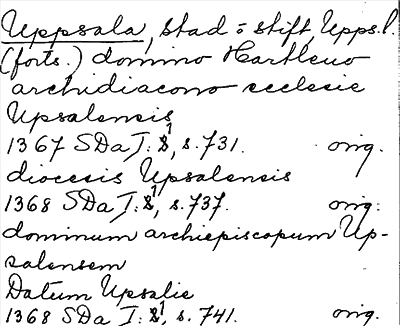 Uppsala, stad o stift, Upps. l.
(forts.) domino Hartleuo
archidiacono ecclesie
Upsalensis
1367 SDa I:1, s. 731. orig.
diocesis Upsalensis
1368 SDa I:1, s. 737. orig.
dominum archiepiscopum Up-
salensem
Datum Upsalie
1368 SDa I:1, s. 741. orig.